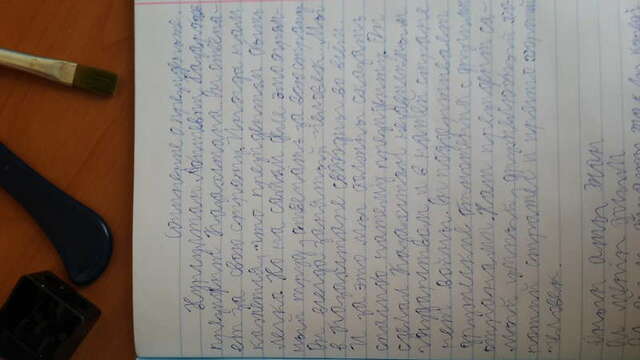 Сочинение о президенте.
Нурсултан Назар
президент Казахстана. Он отвеча-
ет за свою страну. Иногда нам
кажется, что президентом быть
легко. Но на самом деле это огром-
ный труд, отвечать за всю страну.
Он всегда занятый человек. Мы
в Казахстане свободны во всем.
И за это мы должны сказать
спасибо нашему президенту. Он
сделал Казахстан независимым
государством, и в нашей стране
нет войны. Он поддерживает
дружеские отношения с другими
странами. Наш президент са-
мый умный, дружелюбный, хо-
роший стратег и просто хороший
человек.
аты Жан
Ол менің